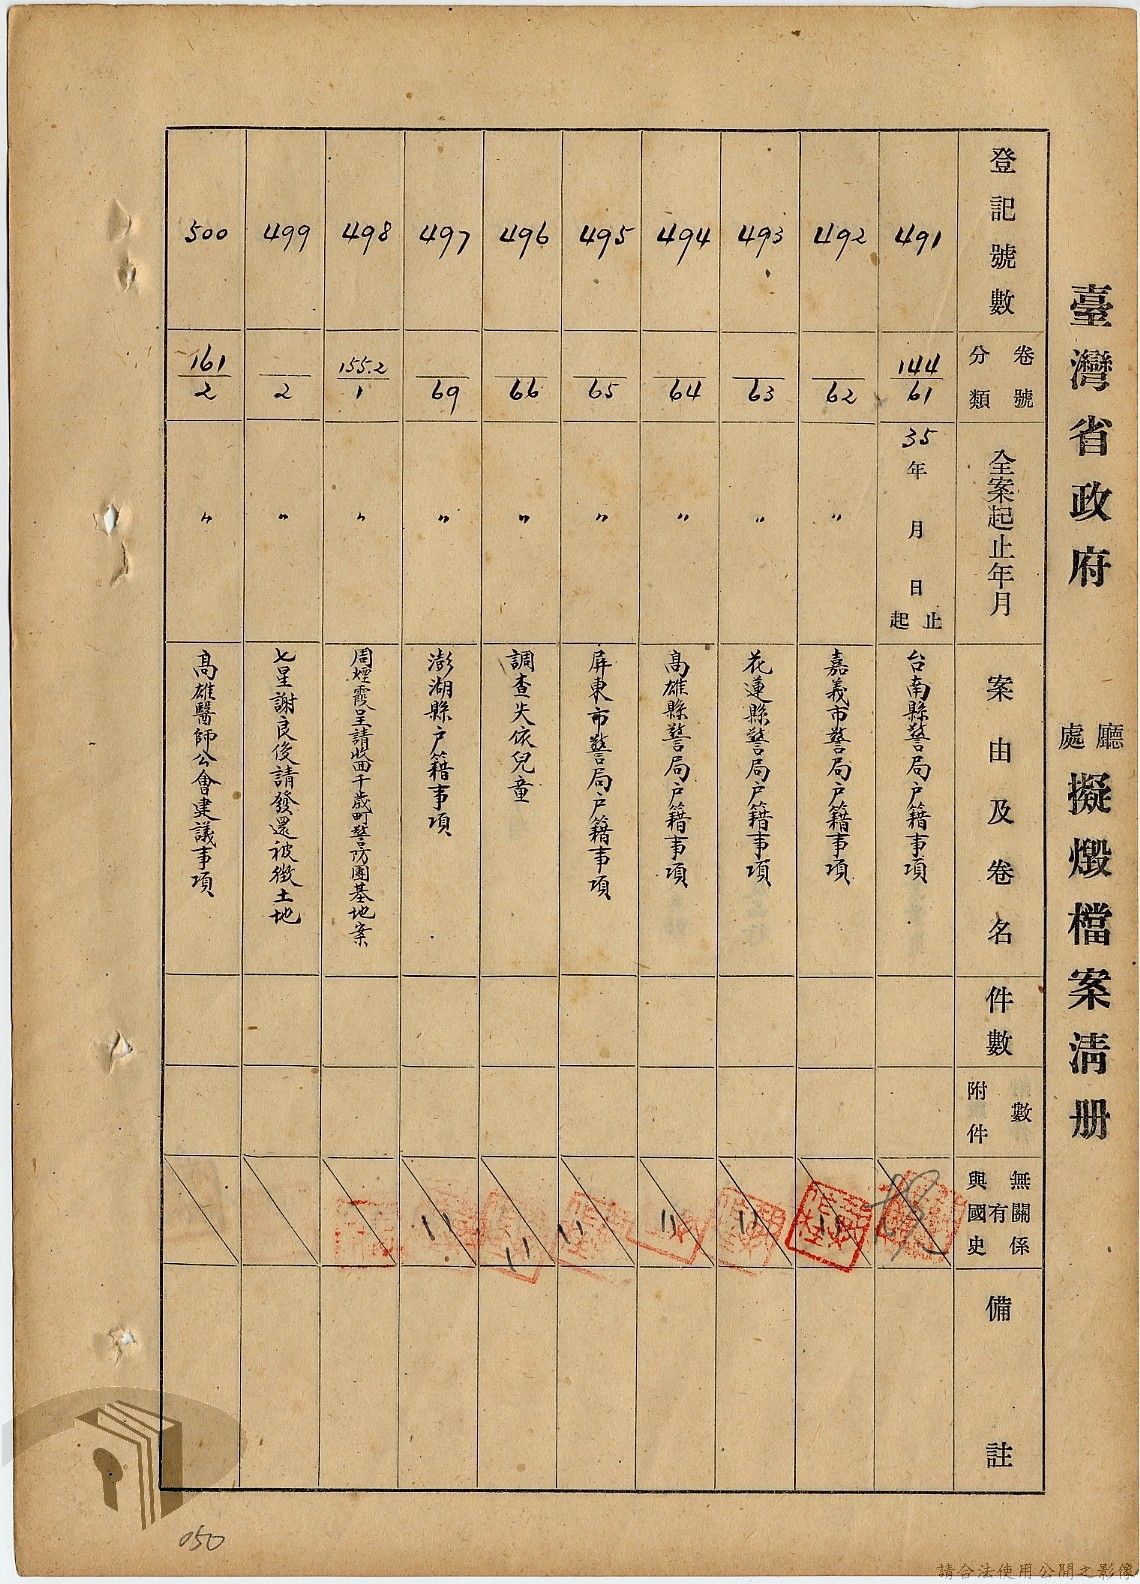 臺灣省政府 廳處 擬燬檔案清册
登記號數
分類 卷號
全案起止年月
案由及卷名
件數
附件 數
與國史 有 無關係
備註
491
144/61
35年 月 日 起 止
台南縣警局户籍事項
492
62
〃
嘉義市警局户籍事項
〃
493
63
〃
花蓮縣警局户籍事項
〃
494
64
〃
高雄縣警局户籍事項
〃
495
65
〃
屏東市警局户籍事項
〃
496
66
〃
調查失依兒童
〃
497
69
〃
澎湖縣户籍事項
〃
498
155.2/1
〃
周煙霞呈請收回千歲町警防團基地案
499
2
〃
七星謝良俊請發還被徵土地
500
161/2
〃
高雄醫師公會建議事項
050
請合法使用公開之影像